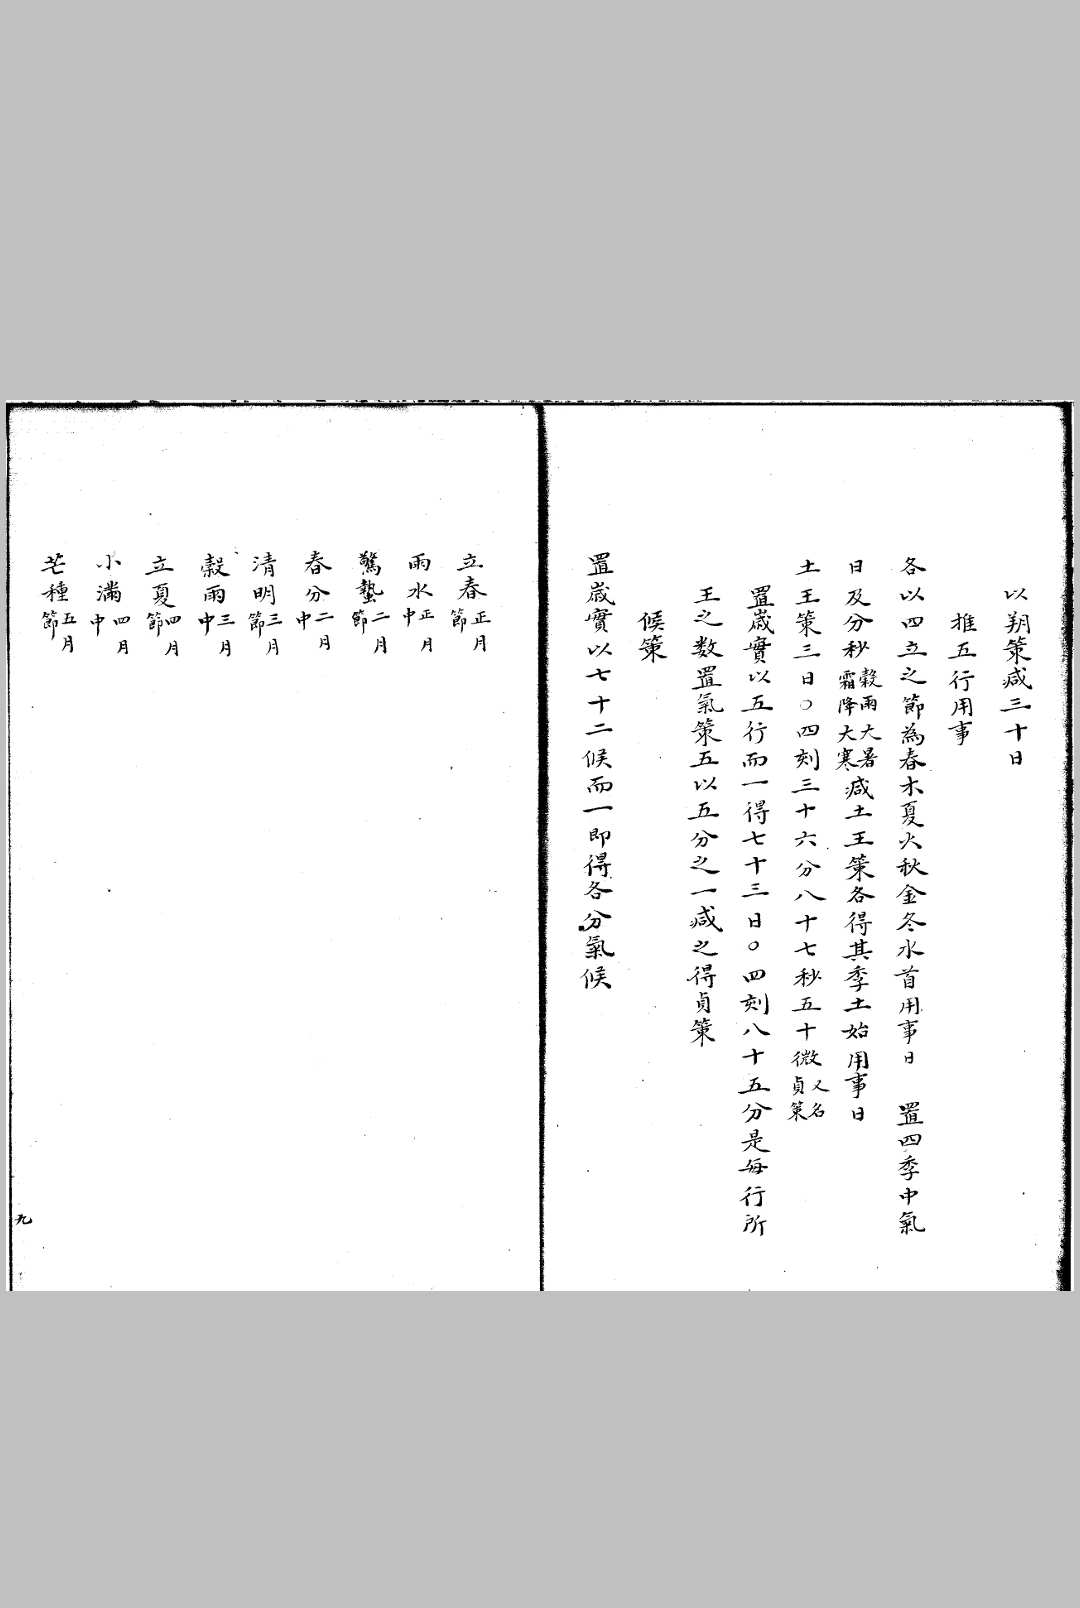 以朔策减三十日
推五行用事
各以四立之節為春木夏火秋金冬水首用事日　置四季中氣
日及分秒穀雨大暑霜降大寒减土王策各得其季土始用事日
土王策三日〇四刻三十六分八十七秒五十微又名貞策
置嵗實以五行而一得七十三日〇四刻八十五分是每行所
王之数置氣策五以五分之一减之得貞策
候策
置嵗實以七十二候而一即得各分氣候
立春正月節
雨水正月中
驚蟄二月節
春分二月中
清明三月節
穀雨三月中
立夏四月節
小滿四月中
芒種五月節
九